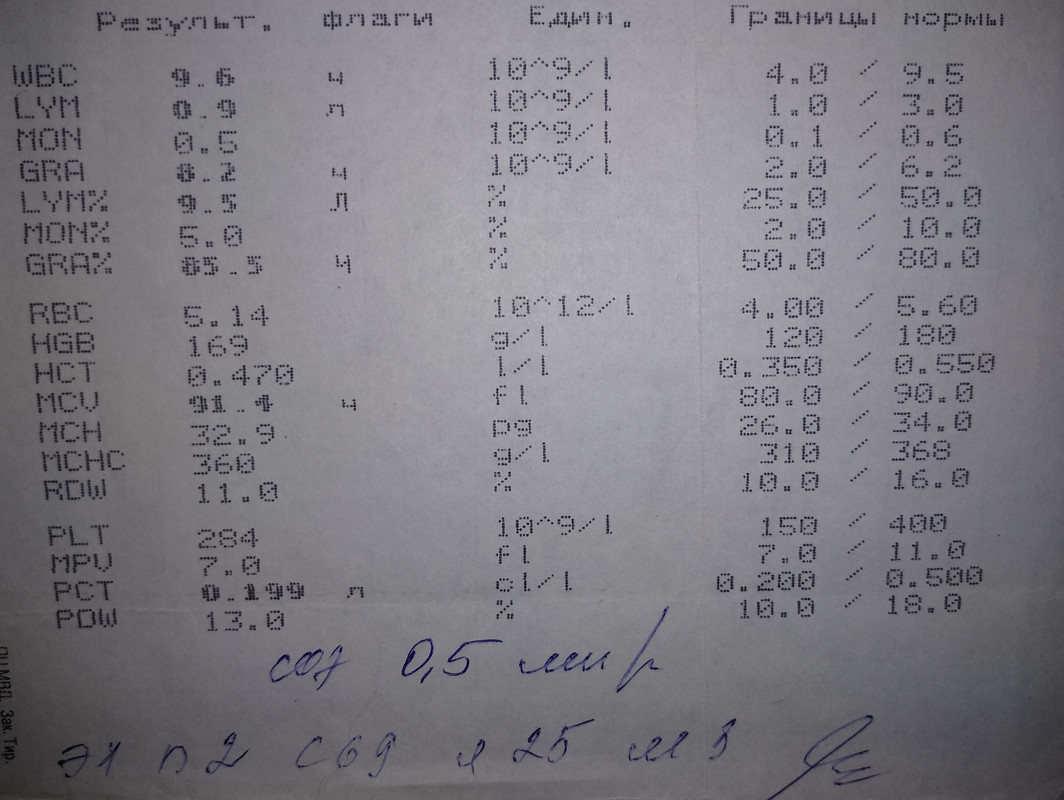 Результ. флаги Един. Границы нормы
WBC 9.6 ч 10^9/l 4.0 / 9.5
LYM 0.9 л 10^9/l 1.0 / 3.0
MON 0.5 10^9/l 0.1 / 0.6
GRA 8.2 ч 10^9/l 2.0 / 6.2
LYM% 9.5 л % 25.0 / 50.0
MON% 5.0 % 2.0 / 10.0
GRA% 85.5 ч % 50.0 / 80.0
RBC 5.14 10^12/l 4.00 / 5.60
HGB 169 g/l 120 / 180
HCT 0.470 l/l 0.350 / 0.550
MCV 91.4 ч fl 80.0 / 90.0
MCH 32.9 pg 26.0 / 34.0
MCHC 360 g/l 310 / 368
RDW 11.0 % 10.0 / 16.0
PLT 284 10^9/l 150 / 400
MPV 7.0 fl 7.0 / 11.0
PCT 0.199 л cl/l 0.200 / 0.500
PDW 13.0 % 10.0 / 18.0
соэ 0,5
э1 п2 с69 л25 м3
МВД. Зак. Тир.